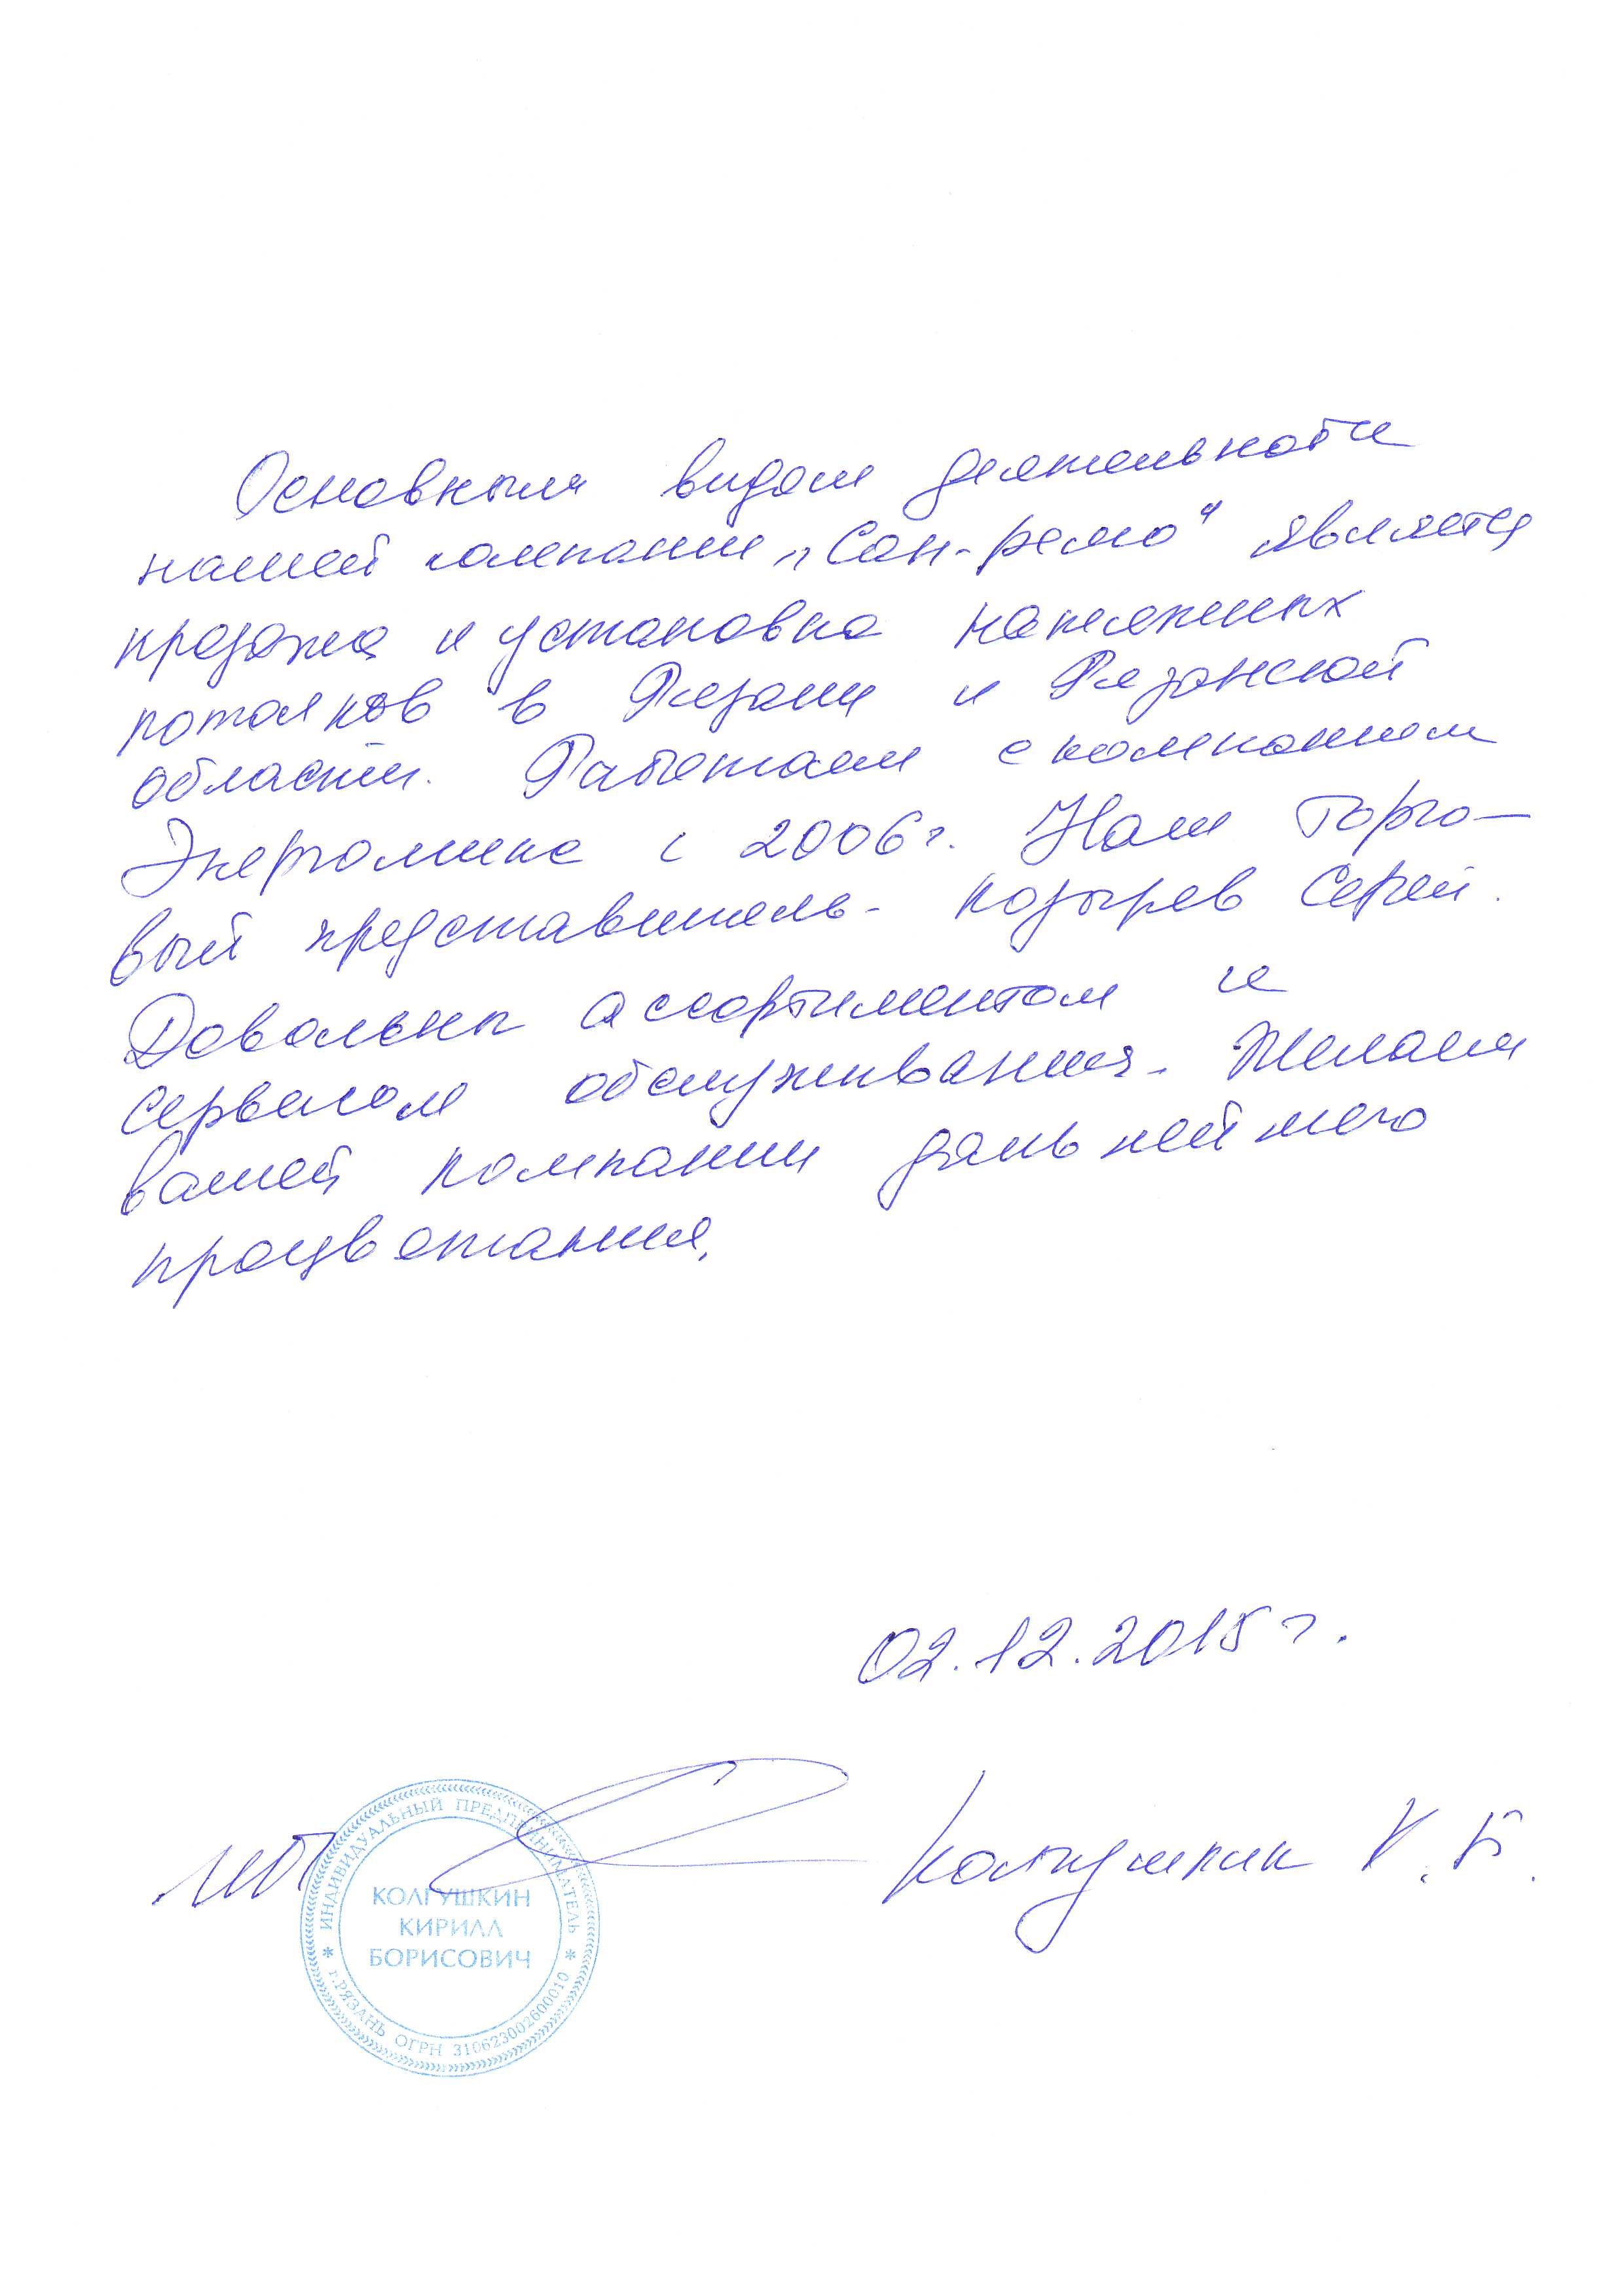 Основным видом деятельности
нашей компании „Сан-ремо“ является
продажа и установка натяжных
потолков в Рязани и Рязанской
области. Работаем с компанией
Энергомикс с 2006г. Наш торго-
вый представитель - Козырев Сергей.
Довольны ассортиментом и
сервисом обслуживания. Желаем
вашей компании дальнейшего
процветания.
02.12.2015 г.
МП
Колгушкин К.Б.
ИНДИВИДУАЛЬНЫЙ ПРЕДПРИНИМАТЕЛЬ
КОЛГУШКИН
КИРИЛЛ
БОРИСОВИЧ
* г.РЯЗАНЬ ОГРН 310623002600010 *